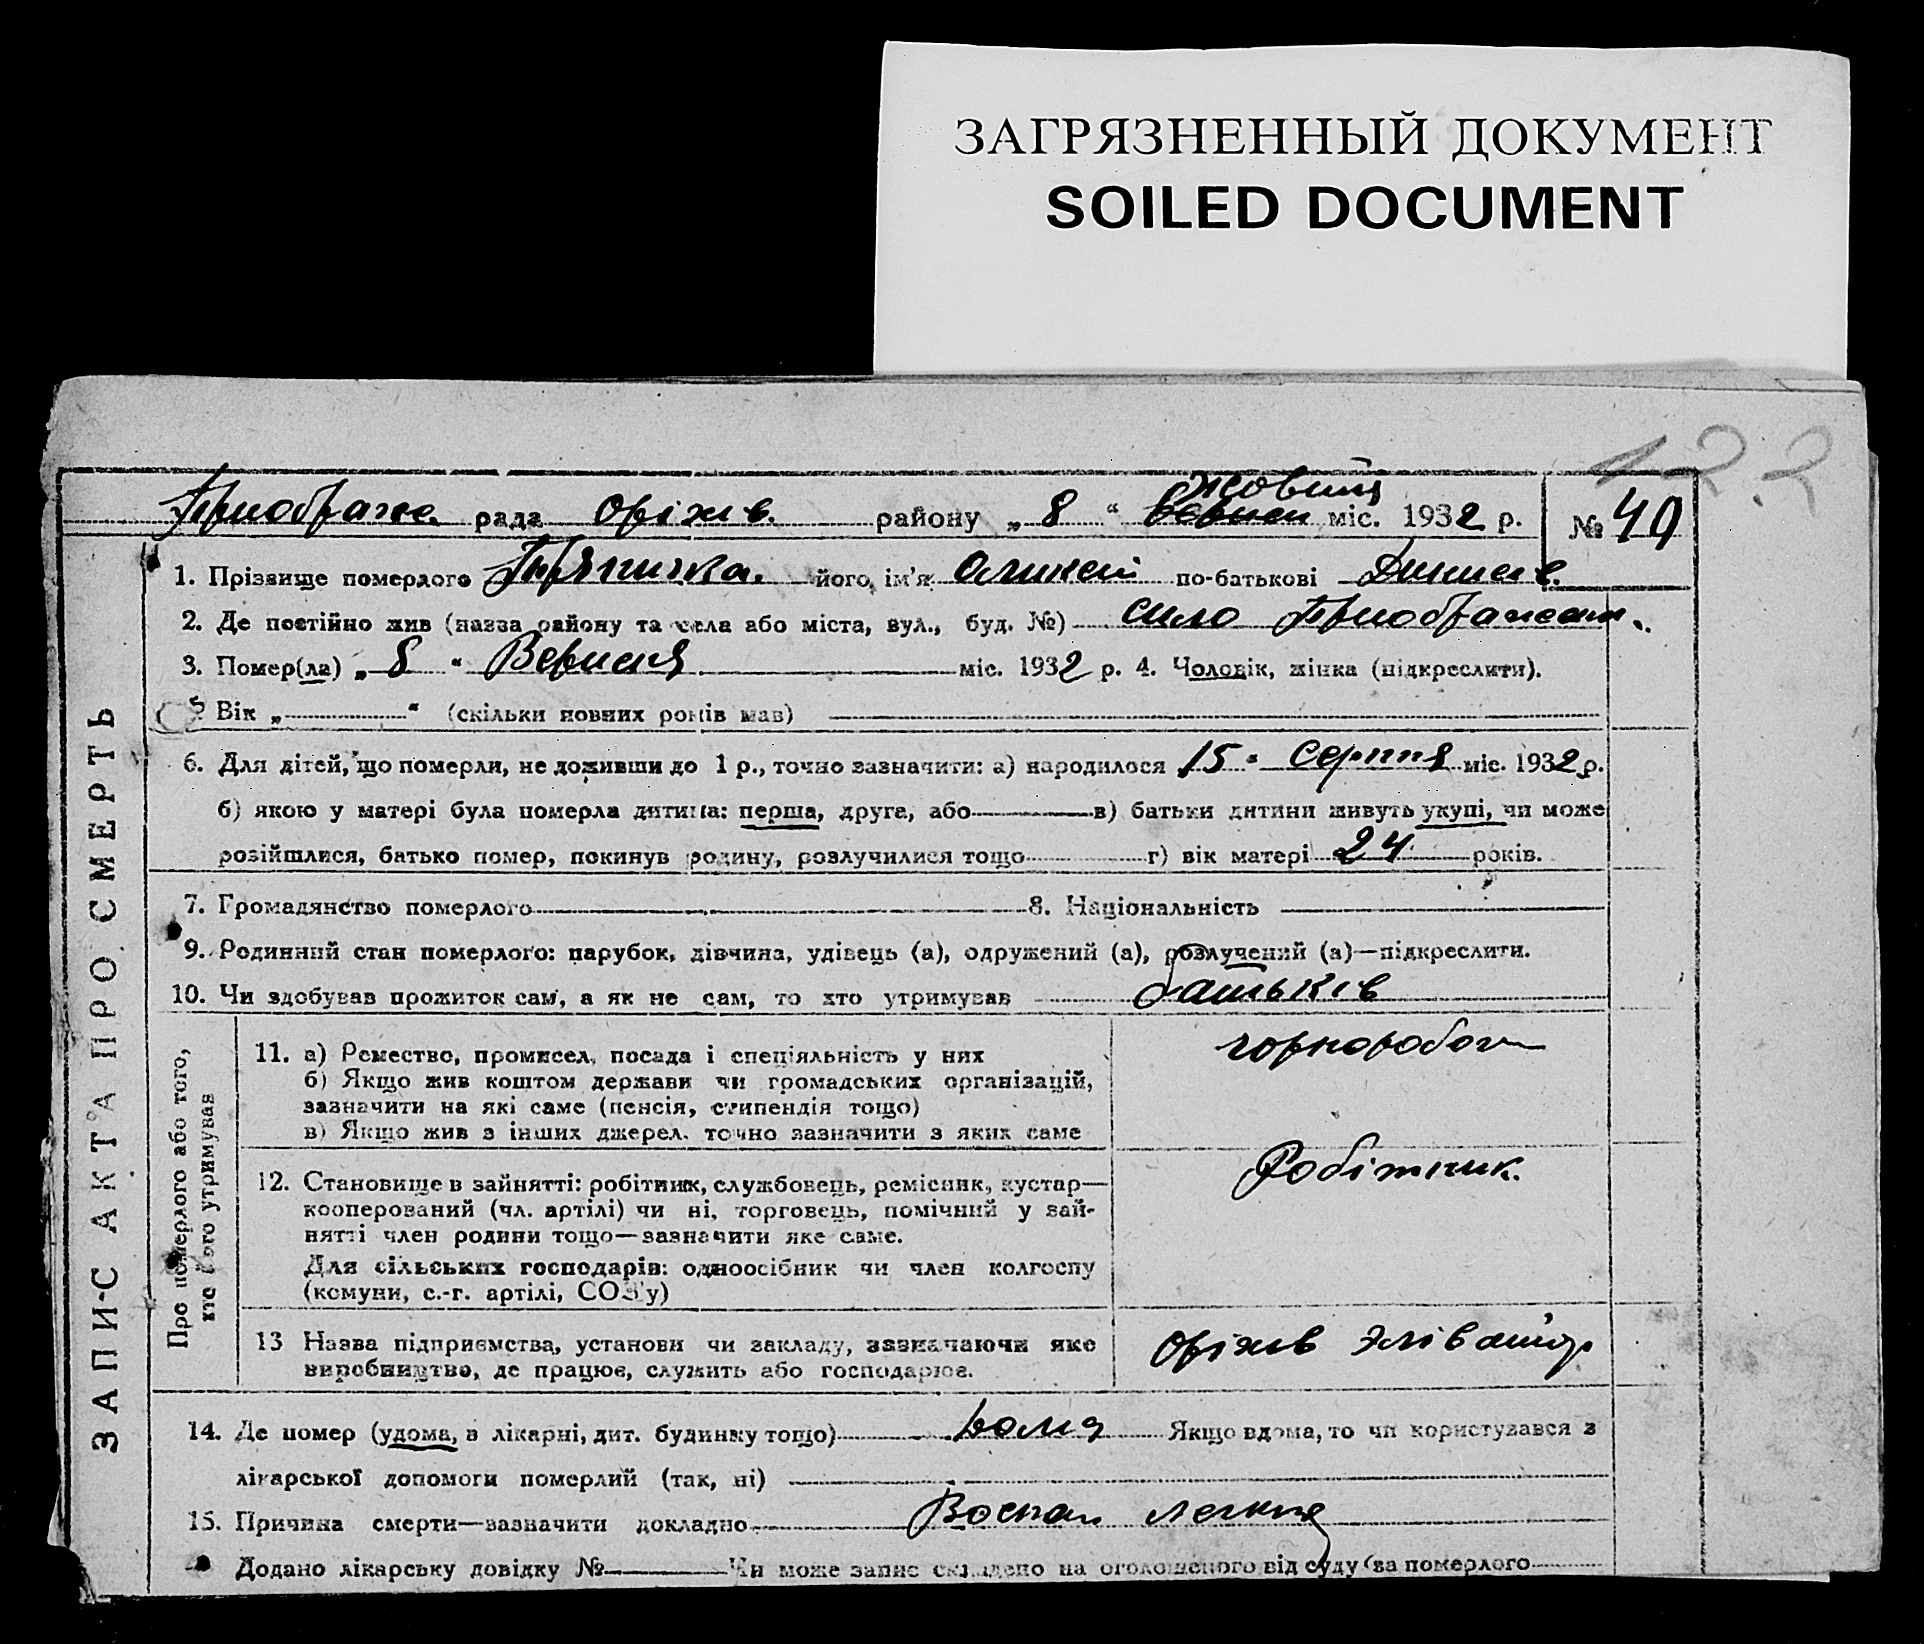 ЗАГРЯЗНЕННЫЙ ДОКУМЕНТ
SOILED DOCUMENT
122
Приображе. рада Оріхів. району „ 8 “ міс. 1932 р. № 40
1. Прізвище померлого його ім'я по-батькові
2. Де постійно жив (назва району та села або міста, вул., буд. №) село Приображен
3. Помер(ла) „ 8 “ Вересня міс. 1932 р. 4. Чоловік, жінка (підкреслити).
5. Вік „ “ (скільки повних років мав)
6. Для дітей, що померли, не доживши до 1 р., точно зазначити: а) народилося 15 “ Серпня міс. 1932 р.
б) якою у матері була померла дитина: перша, друга, або в) батьки дитини живуть укупі, чи може
розійшлися, батько помер, покинув родину, розлучилися тощо г) вік матері 24 років.
7. Громадянство померлого 8. Національність
9. Родинний стан померлого: парубок, дівчина, удівець (а), одружений (а), розлучений (а)—підкреслити.
10. Чи здобував прожиток сам, а як не сам, то хто утримував батьків
ЗАПИС АКТА ПРО СМЕРТЬ
Про померлого або того,
хто його утримував
11. а) Ремество, промисел, посада і спеціяльність у них чорноробоч
б) Якщо жив коштом держави чи громадських організацій,
зазначити на які саме (пенсія, стипендія тощо)
в) Якщо жив з інших джерел, точно зазначити з яких саме
12. Становище в зайнятті: робітник, службовець, ремісник, кустар— Робітник.
кооперований (чл. артілі) чи ні, торговець, помічний у зай-
нятті член родини тощо—зазначити яке саме.
Для сільських господарів: одноосібник чи член колгоспу
(комуни, с.-г. артілі, СОЗ'у)
13 Назва підприємства, установи чи закладу, зазначаючи яке Оріхів Элі ватор
виробництво, де працює, служить або господарює.
14. Де помер (удома, в лікарні, дит. будинку тощо) Якщо вдома, то чи користувався з
лікарської допомоги померлий (так, ні)
15. Причина смерти—зазначити докладно Воспал легких
Додано лікарську довідку № Чи може запис складено на оголошеного від суду за померлого